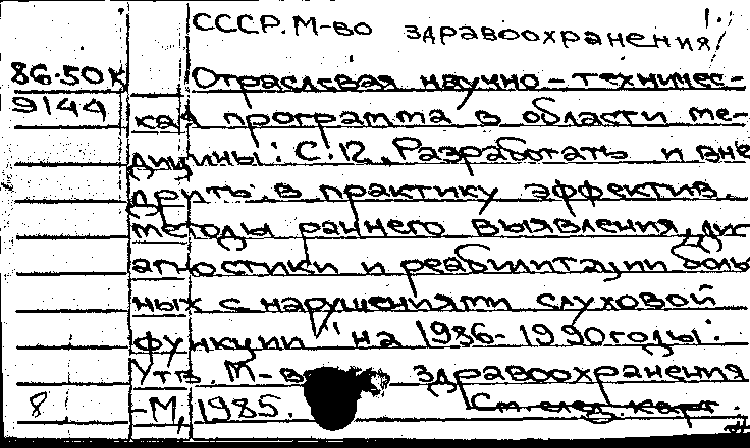 1.
СССР. М-во здравоохранения
86-50К Отраслевая научно-техничес-
9144 кая программа в области ме-
дицины: С.12. "Разработать и вне
дрить в практику эффектив.
методы раннего выявления, диг
агностики и реабилитации боль
ных с нарушениями слуховой
функции" на 1986-1990 годы.
Утв. М-во здравоохранения
8 -М, 1985. См. след. карт.